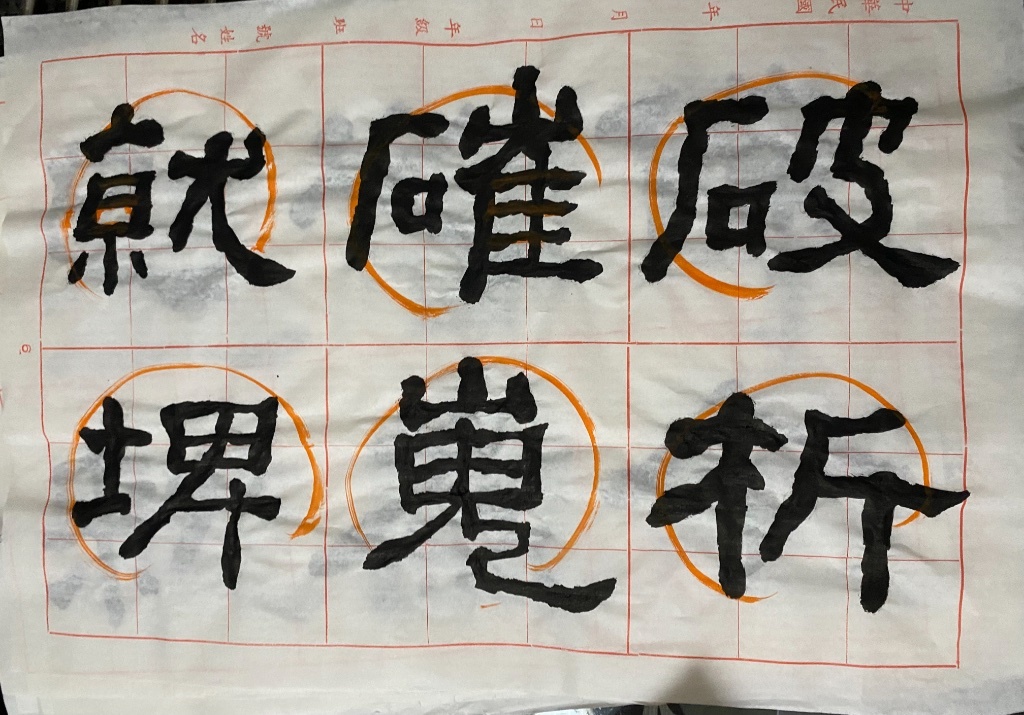 中華民國　年　月　日　年級　班　號　姓名
破析
確嵬
就埤